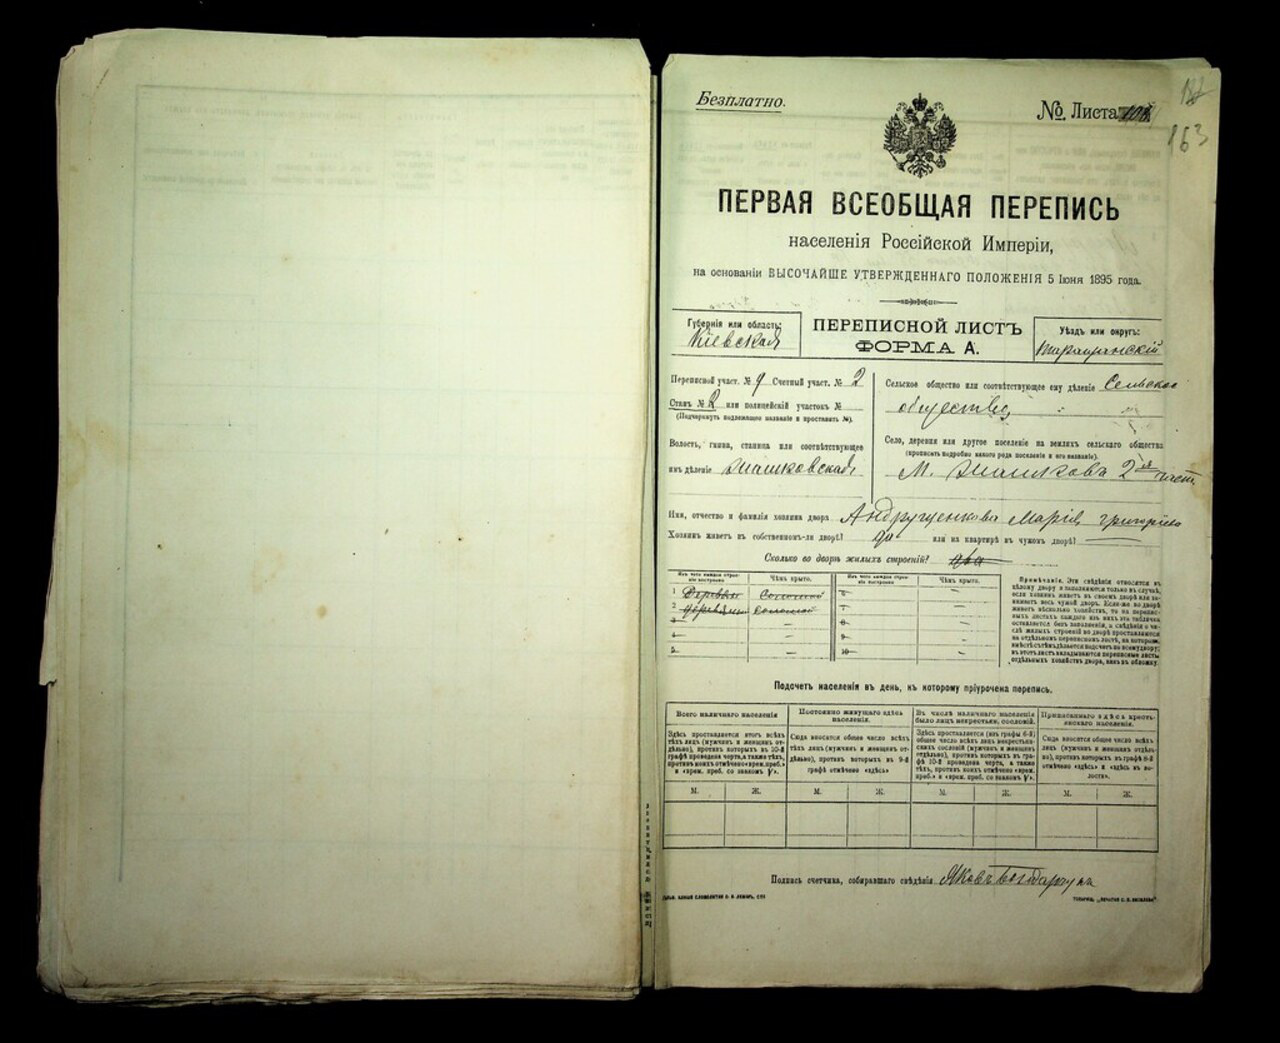 Безплатно.
№ Листа
163
ПЕРВАЯ ВСЕОБЩАЯ ПЕРЕПИСЬ
населенія Россійской Имперіи,
на основаніи ВЫСОЧАЙШЕ УТВЕРЖДЕННАГО ПОЛОЖЕНІЯ 5 Іюня 1895 года.
Губернія или область:
Кіевская
ПЕРЕПИСНОЙ ЛИСТЪ
ФОРМА А.
Уѣздъ или округъ:
Таращанскій
Переписной участ. № 9 Счетный участ. № 2
Станъ № 2 или полицейскій участокъ №
(Подчеркнуть подлежащее названіе и проставить №).
Волость, гмина, станица или соотвѣтствующее
имъ дѣленіе
Сельское общество или соотвѣтствующее ему дѣленіе Сельское
общество
Село, деревня или другое поселеніе на земляхъ сельскаго общества
(прописать подробно какого рода поселеніе и его названіе).
М. 2я част.
Имя, отчество и фамилія хозяина двора Андрущенкова Марія Григоріева
Хозяинъ живетъ въ собственномъ-ли дворѣ? да или на квартирѣ въ чужомъ дворѣ?
Сколько во дворѣ жилыхъ строеній? два
Изъ чего каждое строеніе построено
Чѣмъ крыто.
Изъ чего каждое строеніе построено
Чѣмъ крыто.
1 Деревян Соломой 6
2 деревян соломой 7
3 8
4 9
5 10
Примѣчаніе. Эти свѣдѣнія относятся къ
цѣлому двору и заполняются только въ случаѣ,
если хозяинъ живетъ въ своемъ дворѣ или занимаетъ весь чужой дворъ.
Подсчетъ населенія въ день, къ которому пріурочена перепись.
Всего наличнаго населенія
Здѣсь проставляется итогъ всѣхъ
тѣхъ лицъ (мужчинъ и женщинъ отдѣльно), противъ которыхъ въ 10-й
графѣ проведена черта, а также тѣхъ,
противъ коихъ отмѣчено «врем. преб.»
и «врем. преб. со знакомъ V».
Постоянно живущаго здѣсь
населенія.
Сюда вносится общее число всѣхъ
тѣхъ лицъ (мужчинъ и женщинъ отдѣльно), противъ которыхъ въ 9-й
графѣ отмѣчено «здѣсь»
Въ числѣ наличнаго населенія
было лицъ некрестьян. сословій.
Здѣсь проставляется (изъ графы 6-й)
общее число всѣхъ лицъ некрестьянскихъ сословій (мужчинъ и женщинъ
отдѣльно), противъ которыхъ въ графѣ 10-й проведена черта, а также
тѣхъ, противъ коихъ отмѣчено «врем.
преб.» и «врем. преб. со знакомъ V».
Приписаннаго здѣсь крестьянскаго населенія.
Сюда вносится общее число всѣхъ
лицъ (мужчинъ и женщинъ отдѣльно), противъ которыхъ въ графѣ 8-й
отмѣчено «здѣсь» и «здѣсь въ волости».
М. Ж. М. Ж. М. Ж. М. Ж.
Подпись счетчика, собиравшаго свѣдѣнія Яковъ